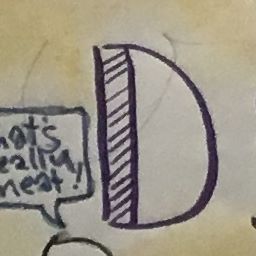 D
hat's
eally
neat!